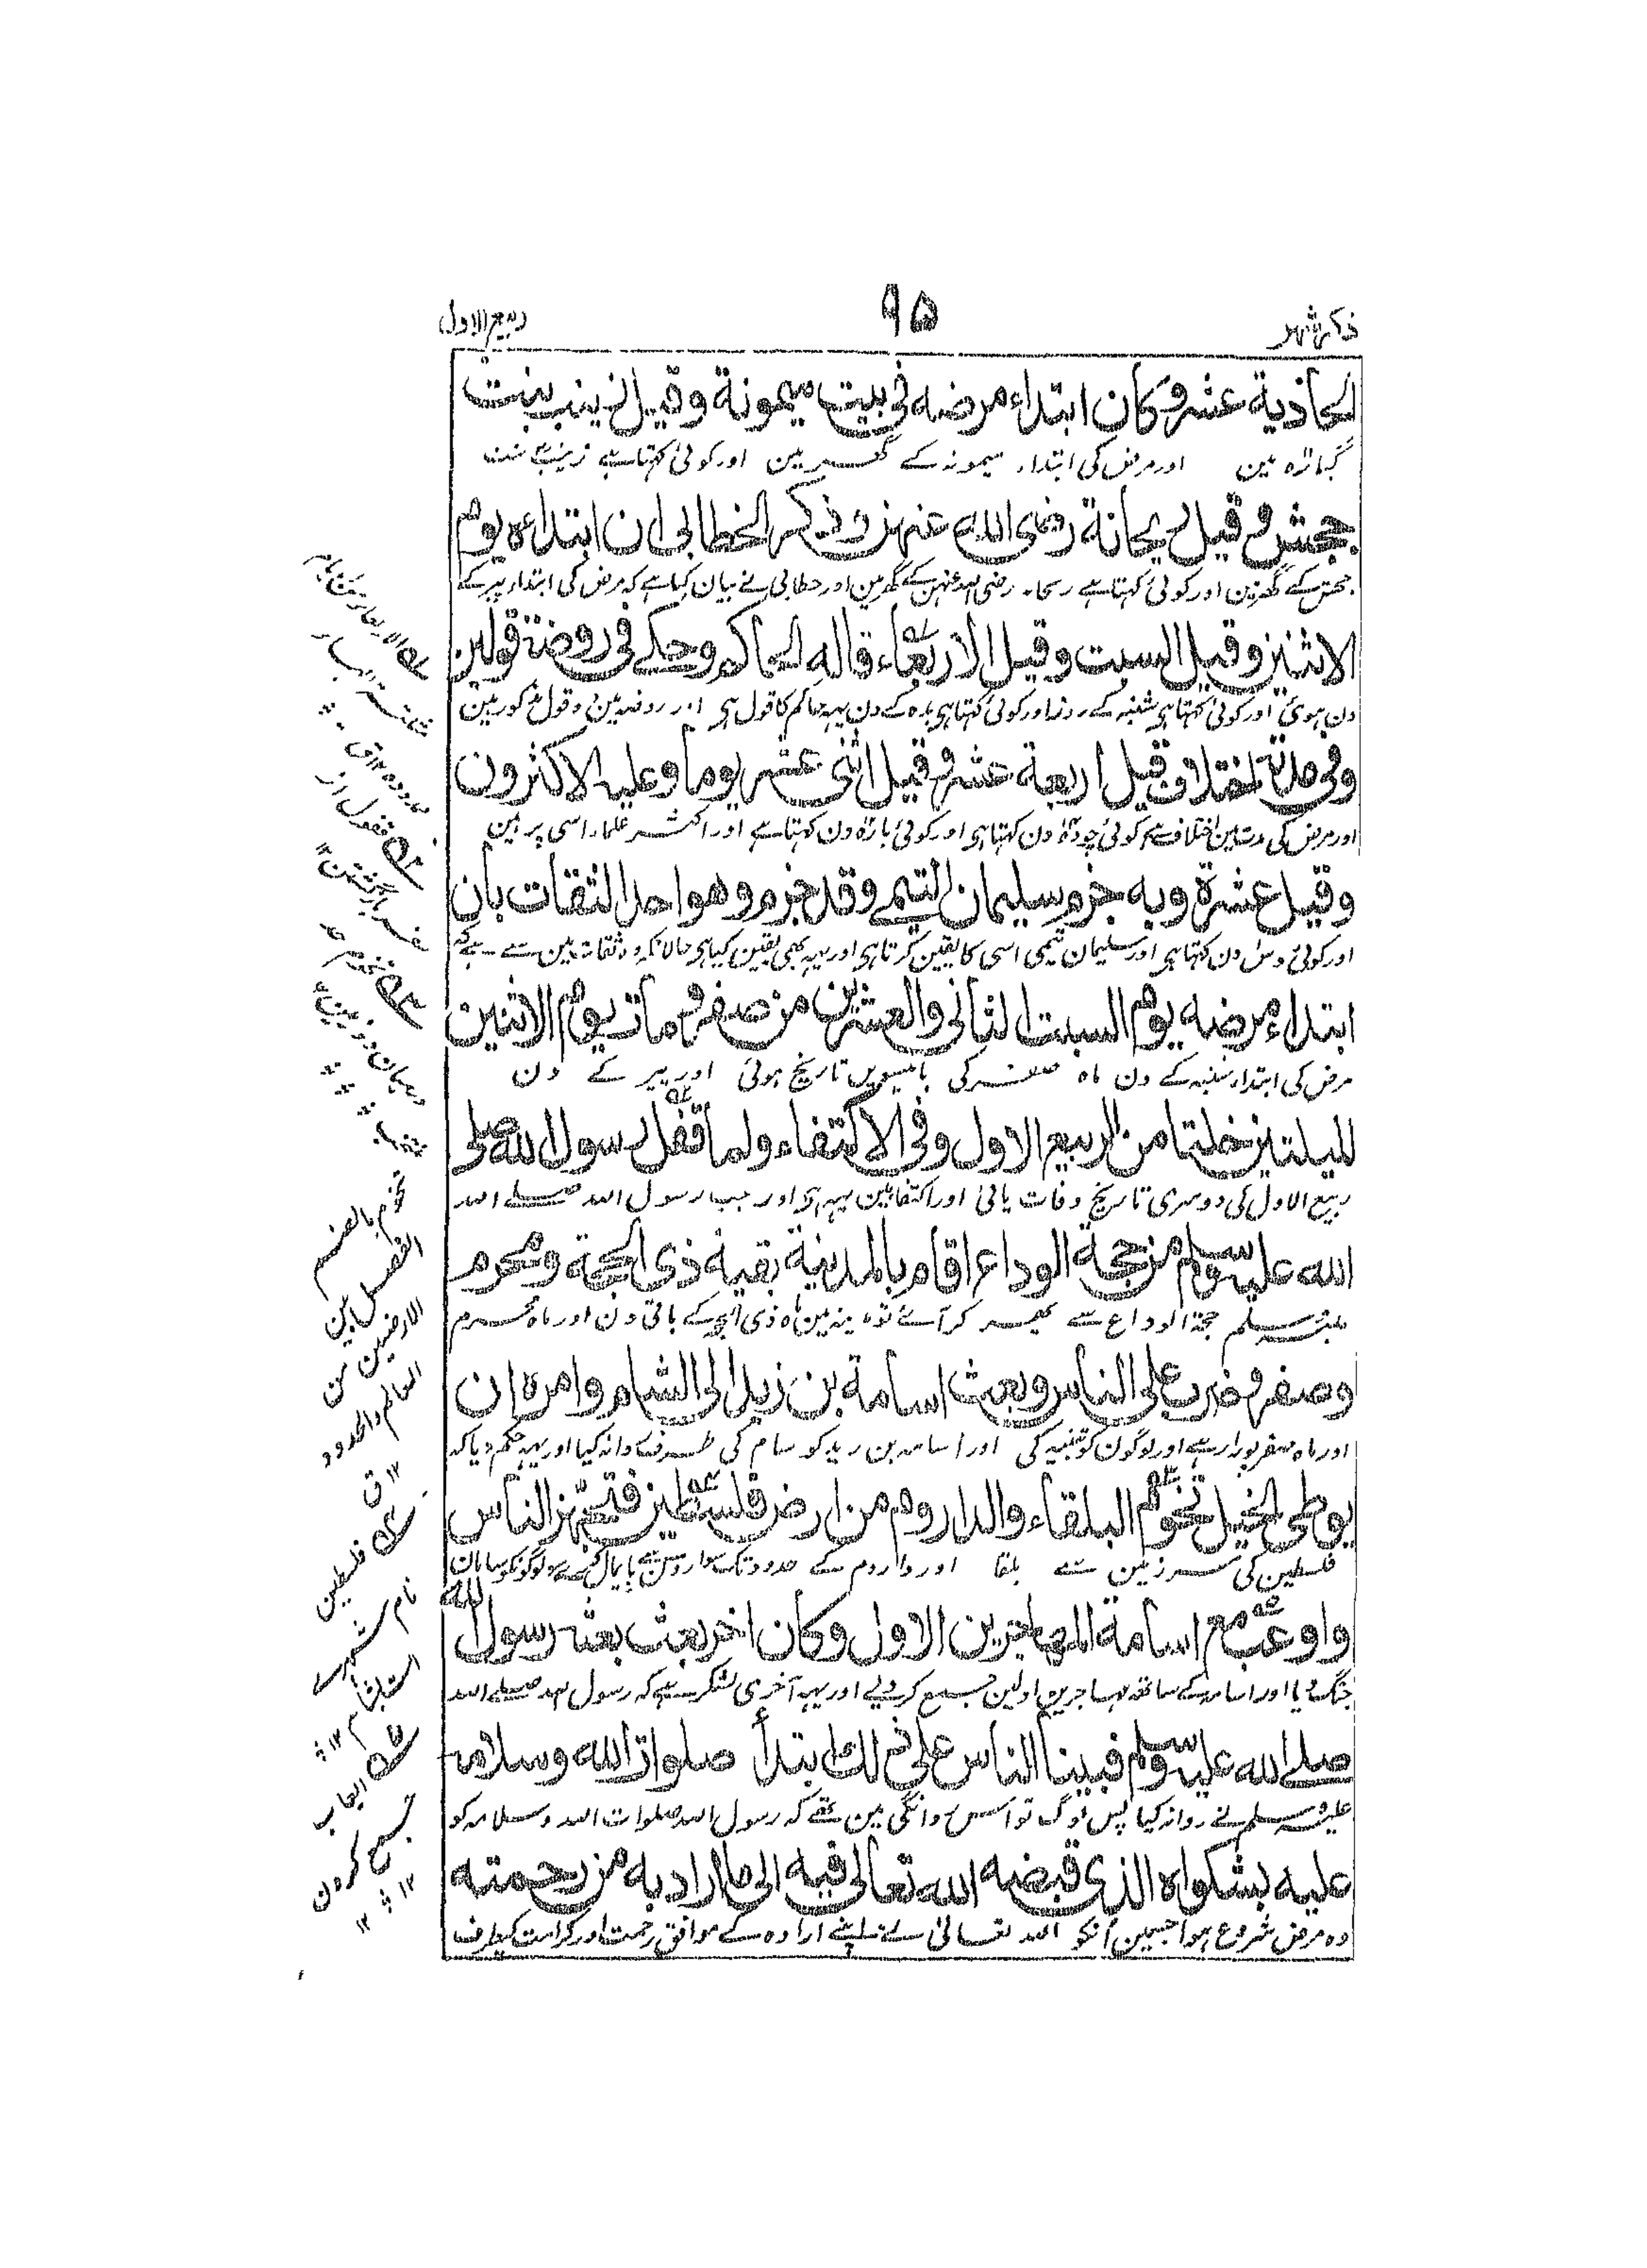 ذکر شہر
۹۵
ربیع الاول
الحادية عشر وكان ابتداء مرضه فى بيت ميمونة وقيل زينب بنت
گیارہ مین اور مرض کی ابتداء میمونہ کے گھر مین اور کوئی کہتا ہے زینب بنت
جحش وقيل ريحانة رضى الله عنهن وذكر الخطابى ان ابتداءه يوم
جحش کے گھر مین اور کوئی کہتا ہے ریحانہ رضی اللہ عنہن کے گھر مین اور خطابی نے بیان کیا ہے کہ مرض کی ابتداء پیر کے
الاثنين وقيل السبت وقيل الاربعاء قاله الحاكم وحكى فى روضة قولين
دن ہوئی اور کوئی کہتا ہی شنبہ کے روز اور کوئی کہتا ہی بدہ کے دن یہہ حاکم کا قول ہی اور روضہ مین دو قول مذکور ہین
وفى مدته اختلاف قيل اربعة عشر وقيل اثنى عشر يوما وعليه الاكثرون
اور مرض کی مدت مین اختلاف ہے کوئی چودہ دن کہتا ہی اور کوئی بارہ دن کہتا ہے اور اکثر علماء اسی پر ہین
وقيل عشرة وبه جزم سليمان التيمى وقد جزم وهو احد الثقات بان
اور کوئی دس دن کہتا ہی اور سلیمان تیمی اسی کا یقین کرتا ہی اور یہہ بھی یقین کیا ہی حالانکہ وہ ثقات مین سے ہے کہ
ابتداء مرضه يوم السبت الثانى والعشرين من صفر ومات يوم الاثنين
مرض کی ابتداء شنبہ کے دن ماہ صفر کی بائیسوین تاریخ ہوئی اور پیر کے دن
لليلتين خلتا من الربيع الاول وفى الاكتفاء ولما قفل رسول الله صلى
ربیع الاول کی دوسری تاریخ وفات پائی اور اکتفا مین یہہ ہی اور جب رسول اللہ صلے اللہ
الله عليه وسلم من حجة الوداع اقام بالمدينة بقية ذى الحجة ومحرم
علیہ وسلم حجۃ الوداع سے پھر کر آئے تو مدینہ مین ماہ ذی الحجہ کے باقی دن اور ماہ محرم
وصفر وضرب على الناس وبعث اسامة بن زيد الى الشام وامره ان
اور ماہ صفر پورا رہے اور لوگون کو تنبیہ کی اور اسامہ بن زید کو شام کی طرف روانہ کیا اور یہہ حکم دیا کہ
يوطى الخيل تخوم البلقاء والداروم من ارض فلسطين فتجهز الناس
فلسطین کی سرزمین سے بلقا اور داروم کے حدود تک سوارون سے پایمال کرے لوگونکو سامان
واوعب مع اسامة المهاجرين الاول وكان اخر بعث بعثه رسول الله
جنگ دیا اور اسامہ کے ساتھ مہاجرین اولین جمع کر دیے اور یہہ آخری لشکر ہے کہ رسول اللہ صلے اللہ
صلى الله عليه وسلم فبينا الناس على ذلك ابتدأ صلوات الله وسلامه
علیہ وسلم نے روانہ کیا پس لوگ تو اس روانگی مین تھے کہ رسول اللہ صلوات اللہ وسلامہ کو
عليه بشكواه الذى قبضه الله تعالى فيه الى ما اراد به من رحمته
وہ مرض شروع ہوا جسمین اُنکو اللہ تعالیٰ نے اپنے ارادہ کے موافق رحمت اور کرامت کیطرف
تخوم بالضم
الفصل بین
الارضین من
المعالم والحدود
۱۲ ق
فلسطین
نام شہرے
است بشام ۱۲
ایعاب
جمع کردن
۱۲